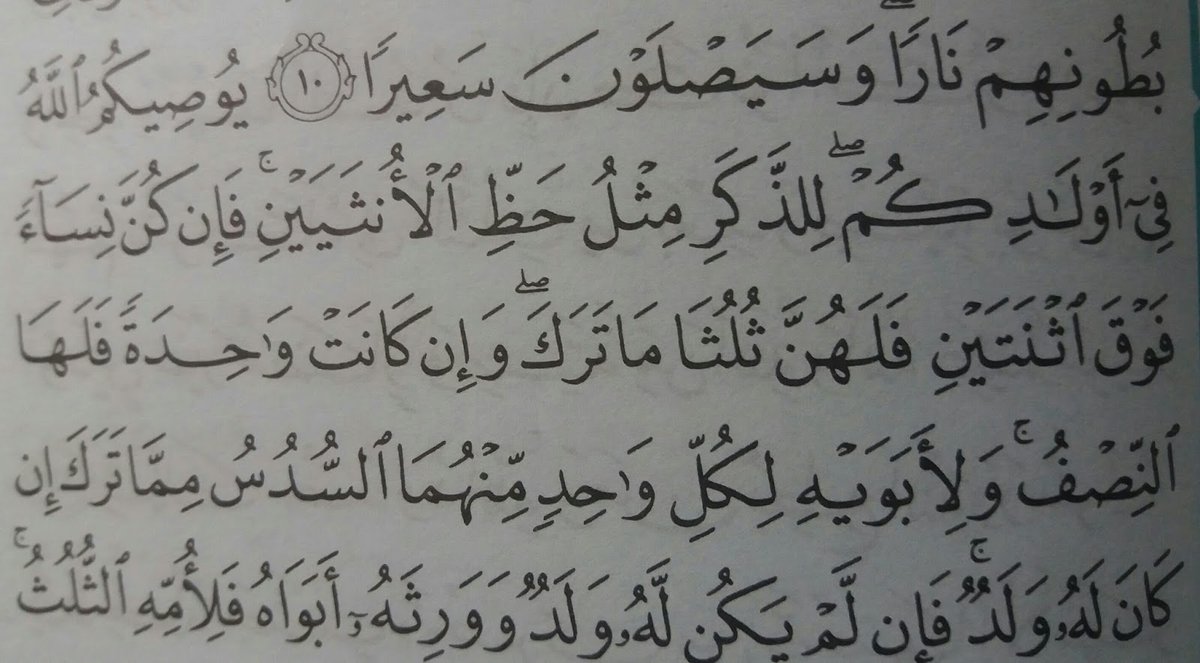 بُطُونِهِمْ نَارًاۖ وَسَيَصْلَوْنَ سَعِيرًا ١٠ يُوصِيكُمُ ٱللَّهُ
فِىٓ أَوْلَٰدِكُمْۖ لِلذَّكَرِ مِثْلُ حَظِّ ٱلْأُنثَيَيْنِۚ فَإِن كُنَّ نِسَآءً
فَوْقَ ٱثْنَتَيْنِ فَلَهُنَّ ثُلُثَا مَا تَرَكَۖ وَإِن كَانَتْ وَٰحِدَةً فَلَهَا
ٱلنِّصْفُۚ وَلِأَبَوَيْهِ لِكُلِّ وَٰحِدٍ مِّنْهُمَا ٱلسُّدُسُ مِمَّا تَرَكَ إِن
كَانَ لَهُۥ وَلَدٌۚ فَإِن لَّمْ يَكُن لَّهُۥ وَلَدٌ وَوَرِثَهُۥٓ أَبَوَاهُ فَلِأُمِّهِ ٱلثُّلُثُۚ